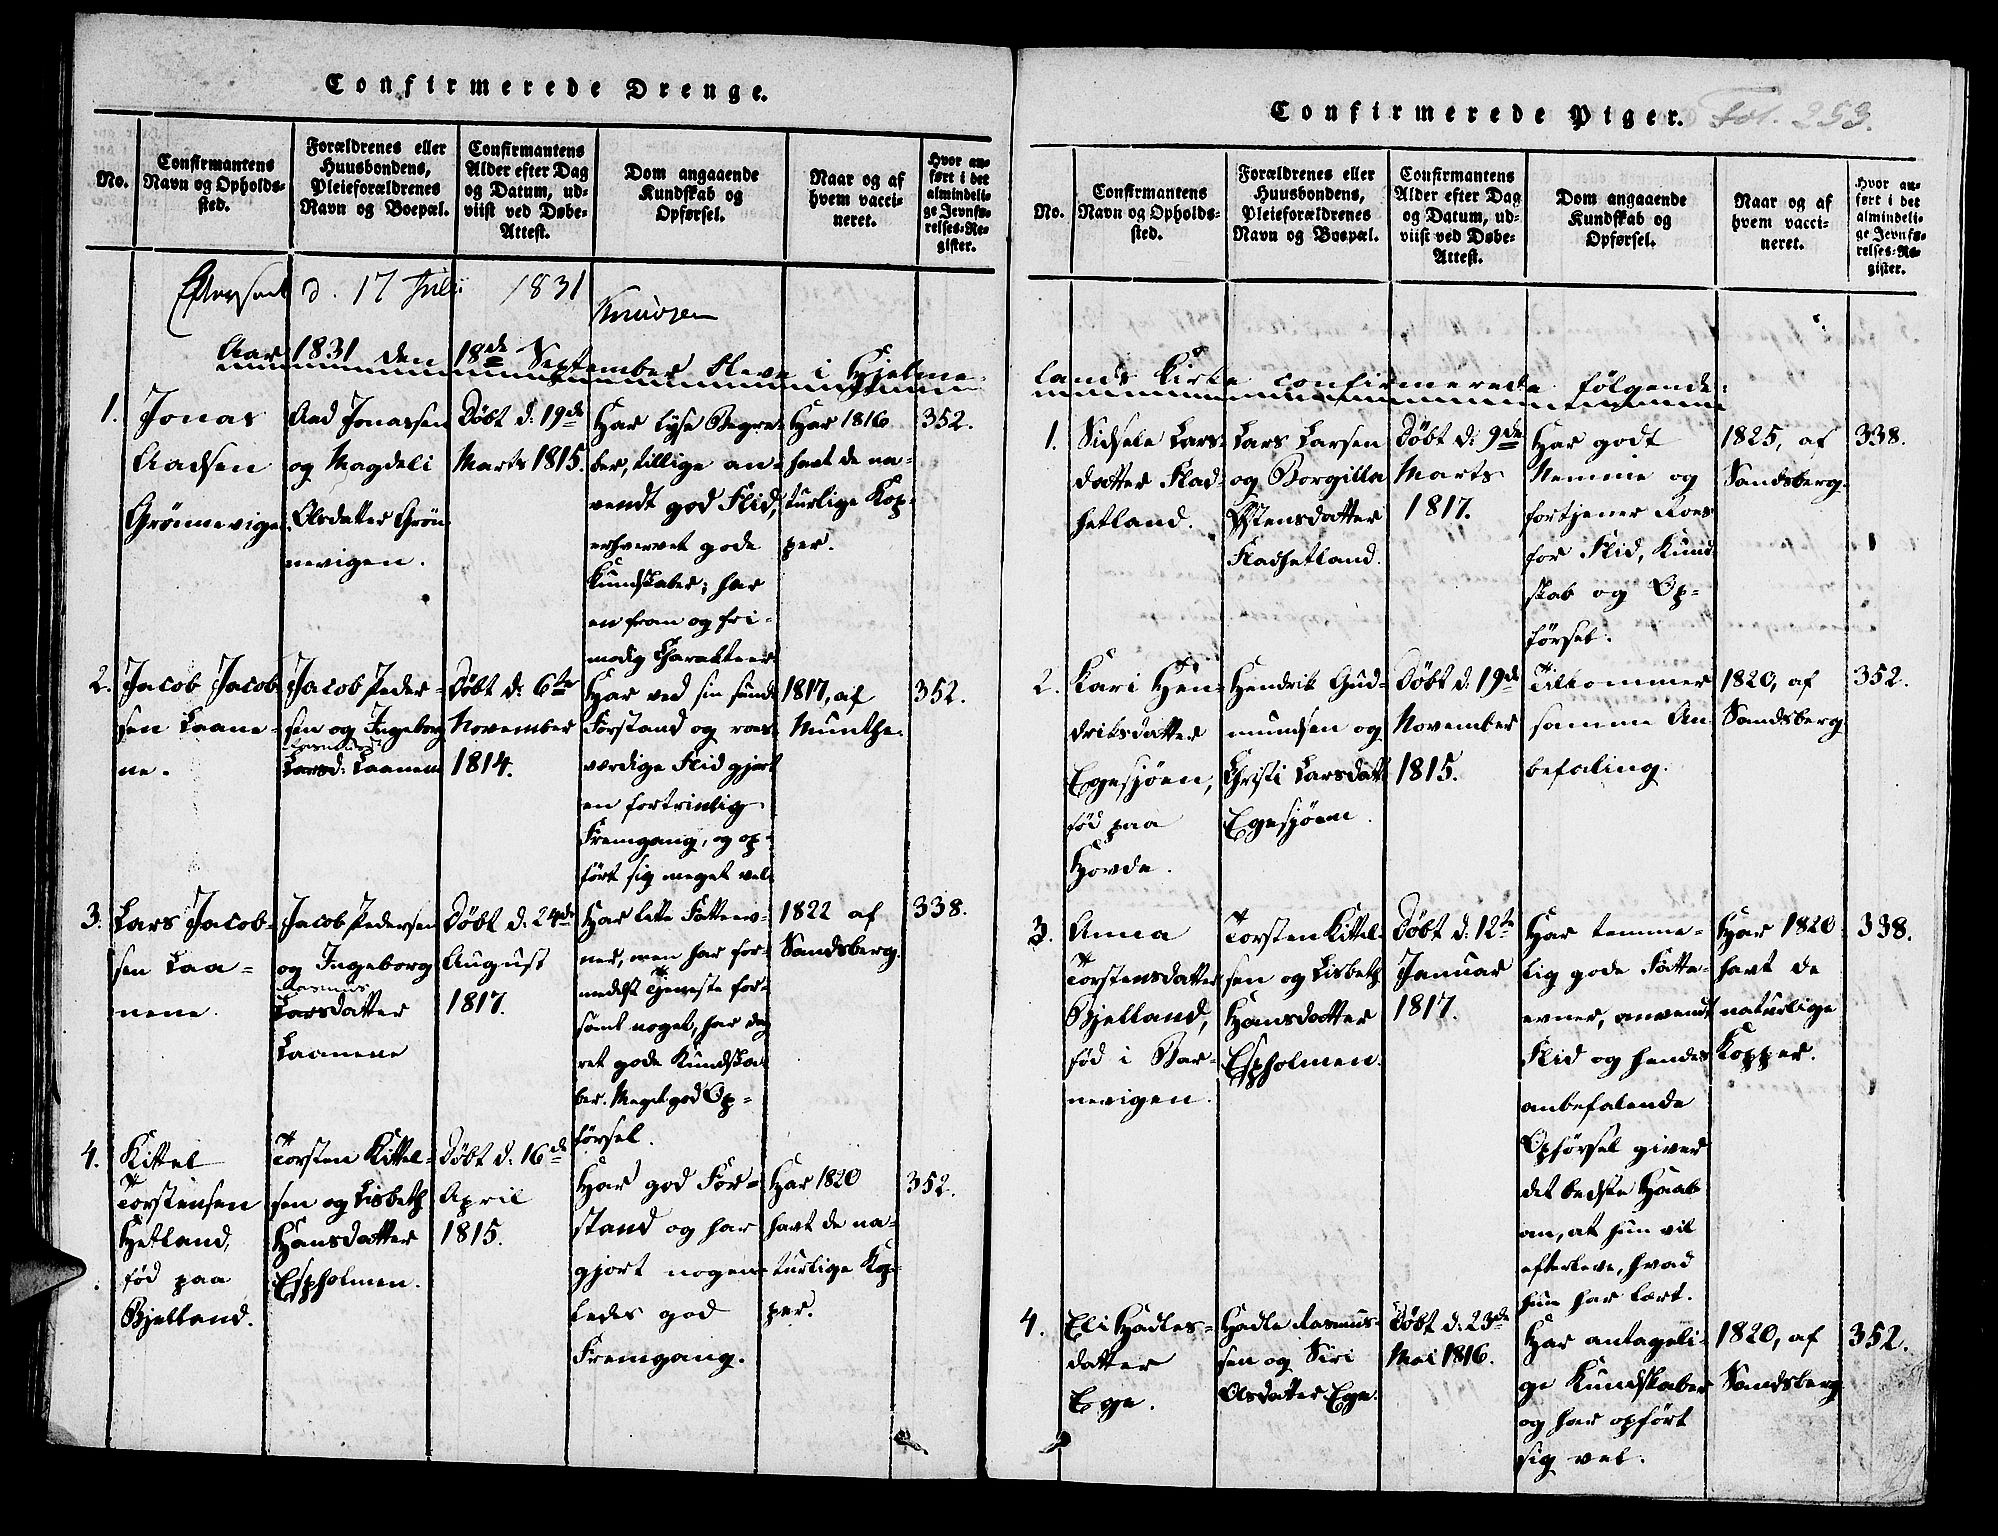 Confirmerede Drenge.
No.
Confirmantens
Navn og Opholds-
sted.
Forældrenes eller
Huusbondens,
Pleieforældrenes
Navn og Boepæl.
Confirmantens
Alder efter Dag
og Datum, ud-
viist ved Døbe-
Attest.
Dom angaaende
Kundskab og
Opførsel.
Naar og af
hvem vacci-
neret.
Hvor an-
ført i det
almindeli-
ge Jevnfø-
relses-Re-
gister.
Efterseet d. 17 Juli 1831
Knudzen
Aar 1831 den 18de September bleve i Hjelme-
1.
Jonas
Aadsen
Grønnevigen.
Aad Jonassen
og Magdeli
Olsdatter Grøn-
nevigen.
Døbt d: 19de
Marts 1815.
Har lyse Begre-
ber, tillige an-
vendt god Flid,
erhvervet gode
Kundskaber; har
en from og fri-
modig Charakteer
Har 1816
havt de na-
turlige Kop-
per.
352.
2.
Jacob Jacob-
sen Laane-
ne.
Jacob Peder-
sen og Ingeborg
Larsd: Laanene
Døbt d: 6te
November
1814.
Har ved sin sunde
Forstand og roes-
værdige Flid gjort
en fortrinlig
Fremgang, og op-
ført sig meget vel.
1817, af
Munthe.
352.
3.
Lars Jacob-
sen Laa-
nene.
Jacob Pedersen
og Ingeborg
Rasmus
Larsdatter
Laanene
Døbt d: 24de
August
1817.
Har lette Fatteev-
ner, men har for-
medelst Tjeneste for-
sømt noget, har dog
ret gode Kundska-
ber. Meget god Op-
førsel.
1822 af
Sandsberg.
338.
4.
Kittel
Torstensen
Hetland,
fød paa
Bjelland.
Torsten Kittel-
sen og Lisbeth
Hansdatter
Espholmen.
Døbt d: 16de
April
1815.
Har god For-
stand og har
gjort nogen-
ledes god
Fremgang.
Har 1820
havt de na-
turlige Kop-
per.
352.
Confirmerede Piger.
Fol. 253.
No.
Confirmantens
Navn og Opholds-
sted.
Forældrenes eller
Huusbondens,
Pleieforældrenes
Navn og Boepæl.
Confirmantens
Alder efter Dag
og Datum, ud-
viist ved Døbe-
Attest.
Dom angaaende
Kundskab og
Opførsel.
Naar og af
hvem vacci-
neret.
Hvor an-
ført i det
almindeli-
ge Jevnfø-
relses-Re-
gister.
lands Kirke confirmerede følgende:
1.
Sidsele Lars-
datter Flad-
hetland.
Lars Larsen
og Borgilla
Østensdatter
Fladhetland.
Døbt d: 9de
Marts
1817.
Har godt
Nemme og
fortjener Roes
for Flid, Kund-
skab og Op-
førsel.
1825, af
Sandsberg.
338.
2.
Kari Hen-
driksdatter
Egesjøen,
fød paa
Hovde.
Hendrik Gud-
mundsen og
Christi Larsdatt
Egesjøen.
Døbt d: 19de
November
1815.
Tilkommer
samme An-
befaling.
1820, af
Sandsberg
352.
3.
Anna
Torstensdatter
Bjelland,
fød i Bar-
nevigen.
Torsten Kittel-
sen og Lisbeth
Hansdatter
Espholmen.
Døbt d: 12te
Januar
1817.
Har temme-
lig gode Fatte-
evner, anvendt
Flid og hendes
anbefalende
Opførsel giver
det bedste Haab
om, at hun vil
efterleve, hvad
hun har lært.
Har 1820
havt de
naturlige
Kopper.
338.
4.
Eli Hadles-
datter
Ege.
Hadle Rasmus-
sen og Siri
Olsdatter Ege.
Døbt d: 23de
Mai 1816.
Har antageli-
ge Kundskaber
og har opført
sig vel.
1820, af
Sandsberg
352.